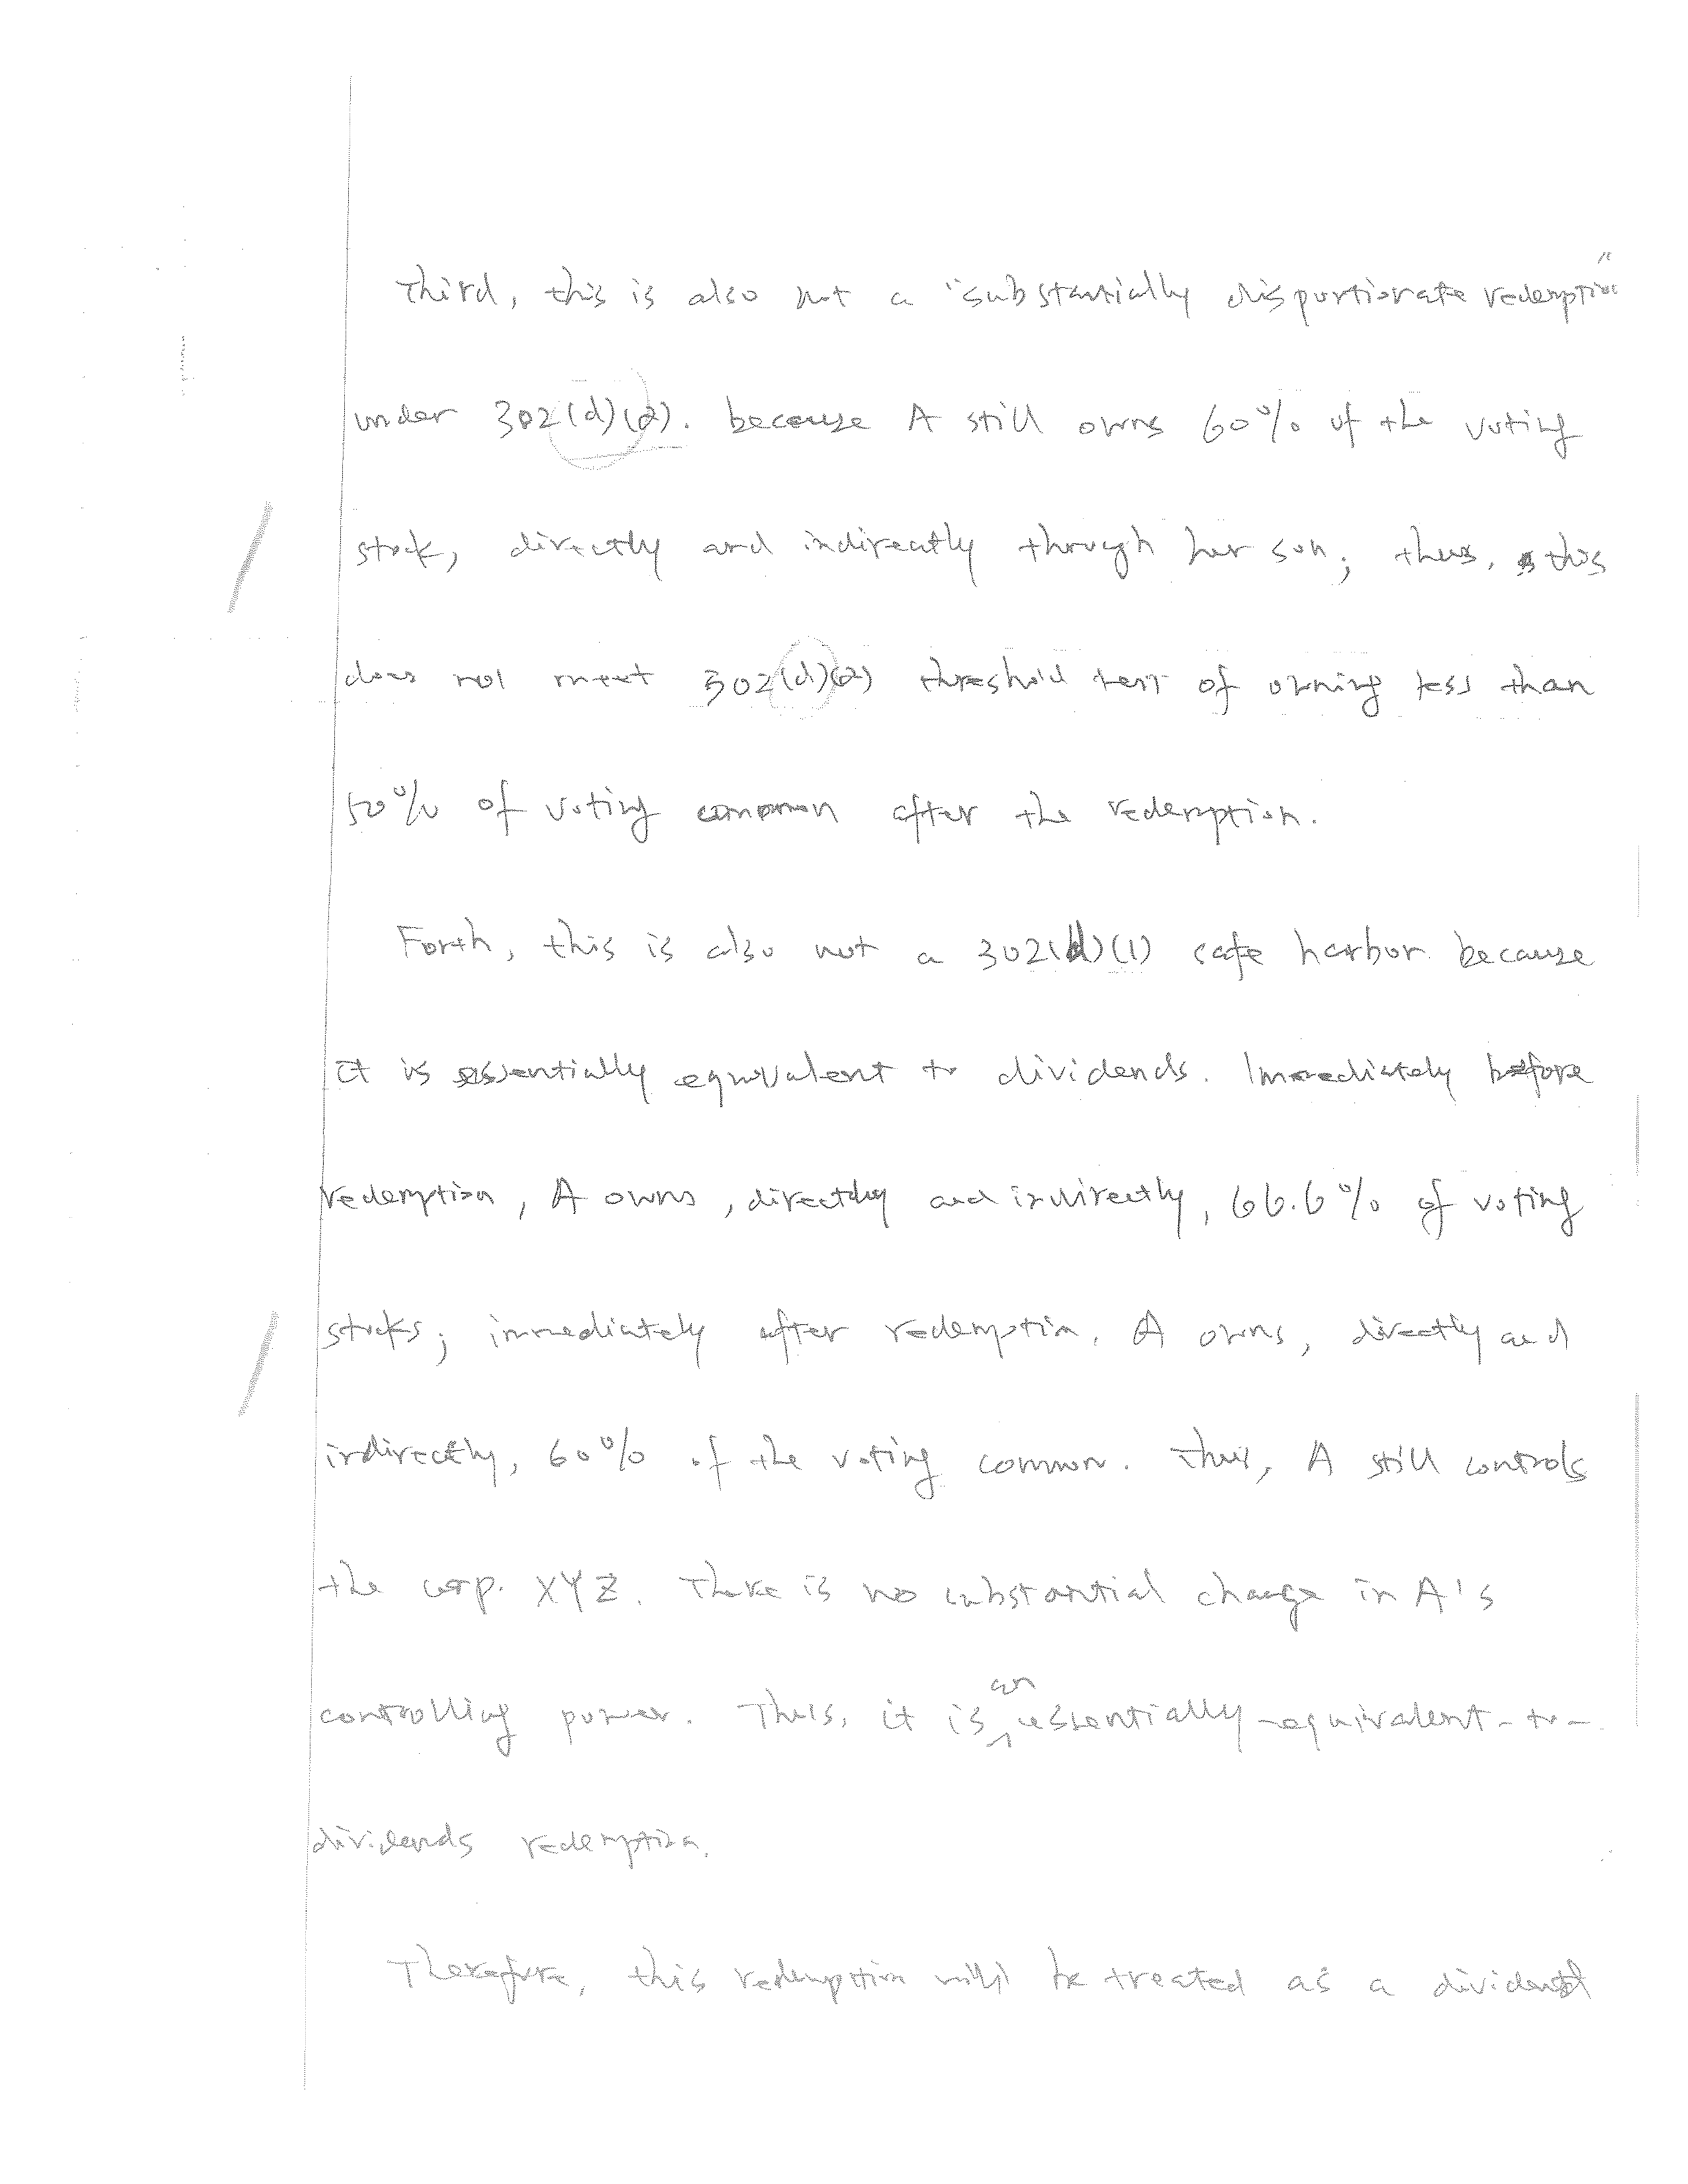 Third, this is also not a "substantially disportionate redemption"
under 302(d)(2). because A still owns 60% of the voting
stock, directly and indirectly through her son; thus, this
does not meet 302(d)(2) threshold test of owning less than
50% of voting common after the redemption.
Forth, this is also not a 302(d)(1) safe harbor because
it is essentially equivalent to dividends. Immediately before
redemption, A owns, directly and indirectly, 66.6% of voting
stocks; immediately after redemption, A owns, directly and
indirectly, 60% of the voting common. Thus, A still controls
the corp. XYZ. There is no substantial change in A's
controlling power. Thus, it is an essentially-equivalent-to-
dividends redemption.
Therefore, this redemption will be treated as a dividend